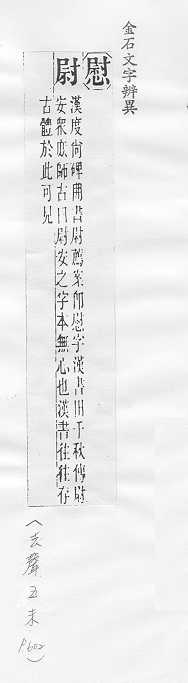 金石文字辨異
〔慰〕尉
漢度尚碑用書尉薦案即慰字漢書田千秋傳尉
安衆庶師古曰尉安之字本無心也漢書往往存
古體於此可見
(去聲五未 P602)